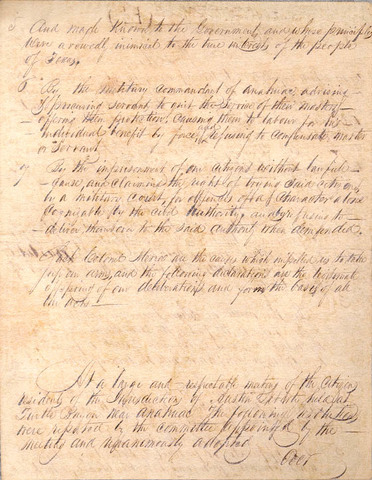 5 And made Known to the Government, and whose principles
were avowedly inimical to the true interests of the people
of Texas,
6 By the military commandant of Anahuac advising
& procuring servants to quit the service of their masters
offering them protection, Causing them to labour for his
individual benefit by force, and refusing to compensate master
or Servant
7 By the imprisonment of our citizens without lawful
cause, and claiming the right of trying said citizens
by a military court, for offences of a character alone
cognizable by the civil authority and by refusing to
deliver them over to the said authority when demanded.
are the causes which impelled us to take
up our arms, and the following declarations are the legitimate
offspring of our deliberations, and form the basis of all
our acts
At a large and respectable meeting of the citizens
residents of the Jurisdiction of held at
Turtle Bayou near Anahuac The following
were reported by the committee appointed by the
meeting and unanimously adopted